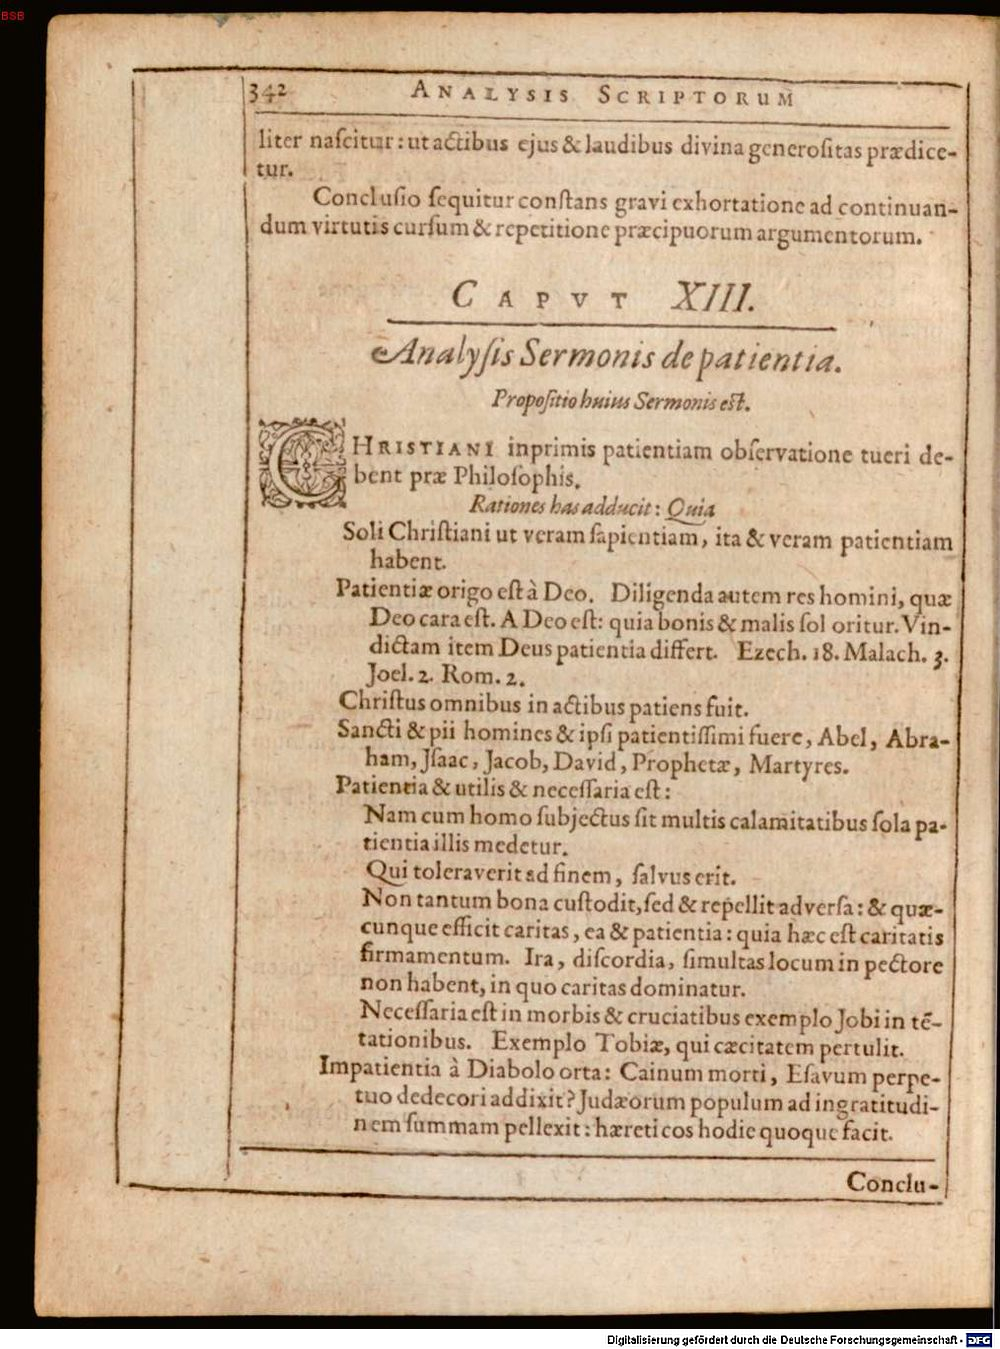 BSB
342 ANALYSIS SCRIPTORUM
liter naſcitur: ut actibus ejus & laudibus divina generoſitas prædice-
tur.
Concluſio ſequitur conſtans gravi exhortatione ad continuan-
dum virtutis curſum & repetitione præcipuorum argumentorum.
CAPVT XIII.
Analyſis Sermonis de patientia.
Propoſitio huius Sermonis est.
CHRISTIANI inprimis patientiam obſervatione tueri de-
bent præ Philoſophis.
Rationes has adducit: Quia
Soli Chriſtiani ut veram ſapientiam, ita & veram patientiam
habent.
Patientiæ origo eſt à Deo. Diligenda autem res homini, quæ
Deo cara eſt. A Deo eſt: quia bonis & malis ſol oritur. Vin-
dictam item Deus patientia differt. Ezech. 18. Malach. 3.
Joel. 2. Rom. 2.
Chriſtus omnibus in actibus patiens fuit.
Sancti & pii homines & ipſi patientiſſimi fuere, Abel, Abra-
ham, Jſaac, Jacob, David, Prophetæ, Martyres.
Patientia & utilis & neceſſaria eſt:
Nam cum homo ſubjectus ſit multis calamitatibus ſola pa-
tientia illis medetur.
Qui toleraverit ad finem, ſalvus erit.
Non tantum bona cuſtodit, ſed & repellit adverſa: & quæ-
cunque efficit caritas, ea & patientia: quia hæc eſt caritatis
firmamentum. Ira, diſcordia, ſimultas locum in pectore
non habent, in quo caritas dominatur.
Neceſſaria eſt in morbis & cruciatibus exemplo Jobi in tē-
tationibus. Exemplo Tobiæ, qui cæcitatem pertulit.
Impatientia à Diabolo orta: Cainum morti, Eſavum perpe-
tuo dedecori addixit? Judæorum populum ad ingratitudi-
nem ſummam pellexit: hæreticos hodie quoque facit.
Conclu-
Digitalisierung gefördert durch die Deutsche Forschungsgemeinschaft - DFG